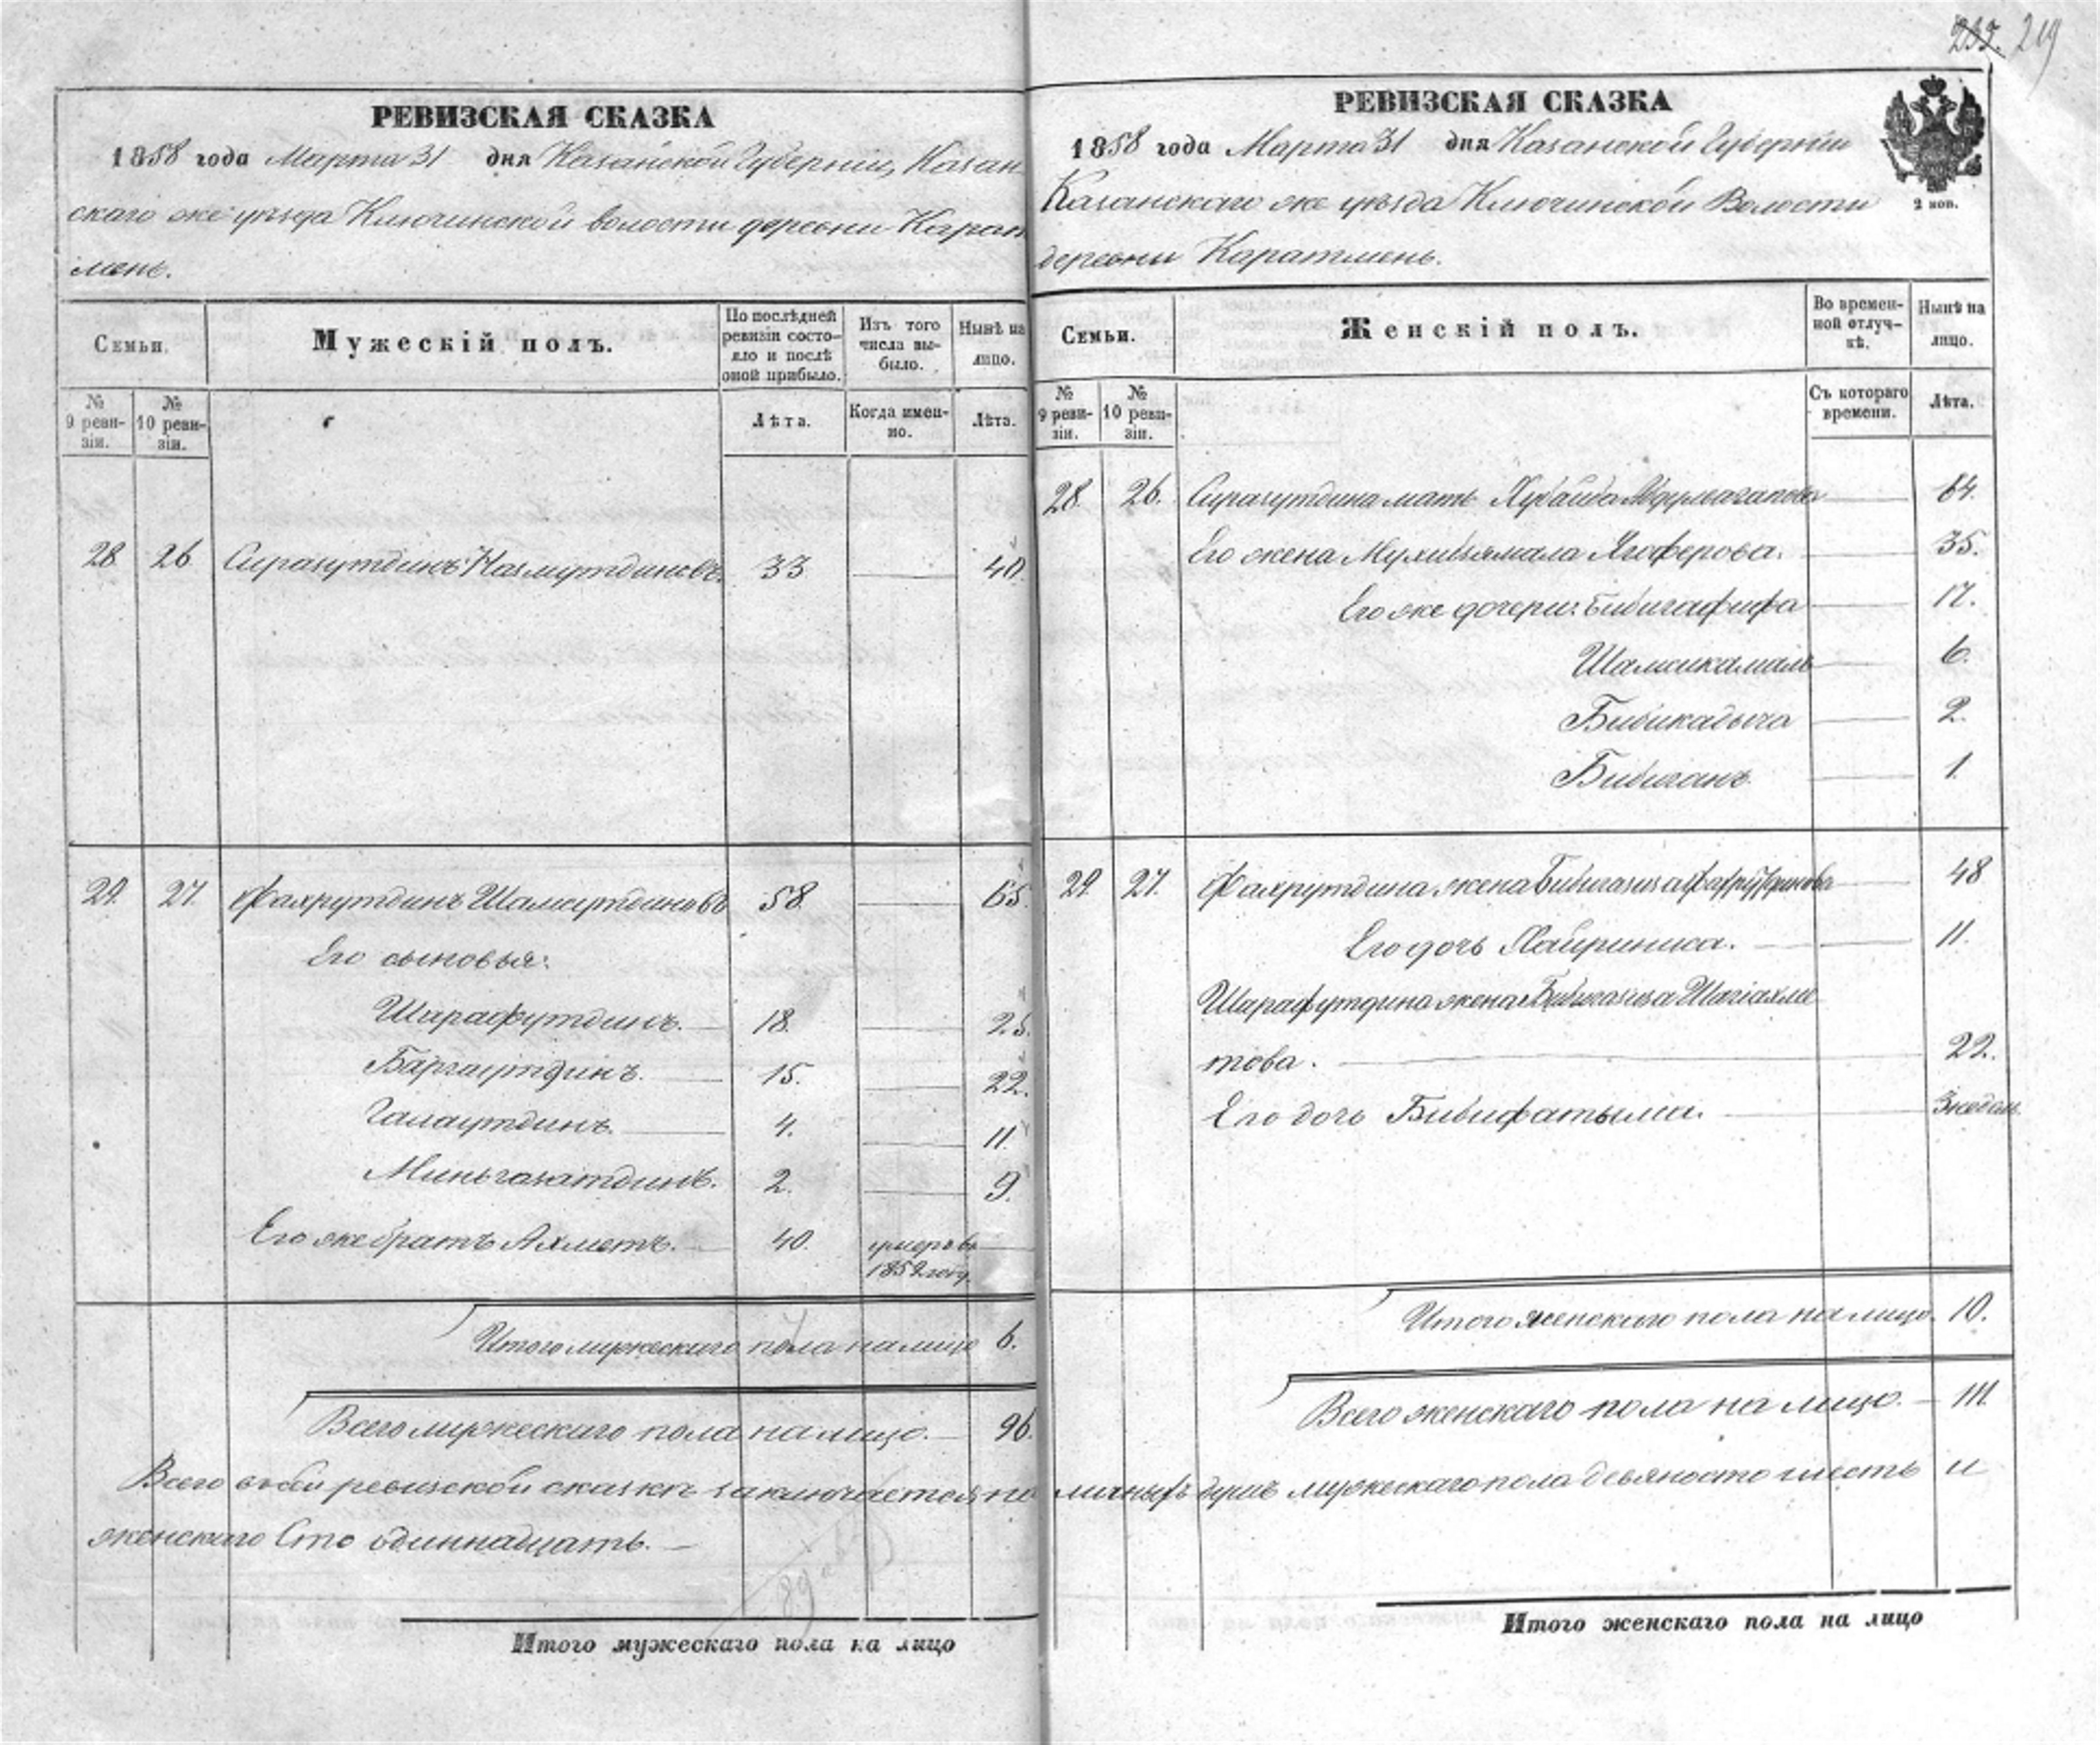 219
РЕВИЗСКАЯ СКАЗКА
1858 года Марта 31 дня Казанской Губерніи, Казан
скаго же уѣзда Ключинской волости деревни Карат
мень.
Семьи.
Мужескій полъ.
По послѣдней ревизіи состояло и послѣ оной прибыло.
Изъ того числа выбыло.
Нынѣ на лицо.
№ 9 ревизіи.
№ 10 ревизіи.
Лѣта.
Когда именно.
Лѣта.
28 26 Сиразутдинъ Назмутдиновъ 33 40.
29. 27. Фахрутдинъ Шамсутдиновъ 58. 65.
Его сыновья:
Шарафутдинъ. 18. 25.
Баргаутдинъ. 15. 22.
Галаутдинъ. 4. 11.
Миньгазатдинъ. 2. 9.
Его же братъ Ахметъ. 40. умеръ въ
1852 году.
Итого мужескаго пола на лицо 6.
Всего мужескаго пола на лицо. 96.
Всего въ сей ревизской сказкѣ заключается на
женскаго Сто одиннадцать.
Итого мужескаго пола на лицо
РЕВИЗСКАЯ СКАЗКА
1858 года Марта 31 дня Казанской Губерніи
Казанскаго же уѣзда Ключинской Волости
деревни Каратмень.
2 коп.
Семьи.
Женскій полъ.
Во временной отлучкѣ.
Нынѣ на лицо.
№ 9 ревизіи.
№ 10 ревизіи.
Съ котораго времени.
Лѣта.
28. 26. Сиразутдина мать 64.
Его жена 35.
Его же дочери: Бибигафифа 17.
Шамсикамаль 6.
Бибикадыча 2.
Бибиганъ 1.
29. 27. Фахрутдина жена 48
Его дочь Хайриниса. 11.
Шарафутдина жена Шагіахме
това. 22.
Его дочь Бибифатыма. 3 недѣли.
Итого женскаго пола на лицо. 10.
Всего женскаго пола на лицо. 111.
личныхъ душъ мужескаго пола девяносто шесть и
Итого женскаго пола на лицо